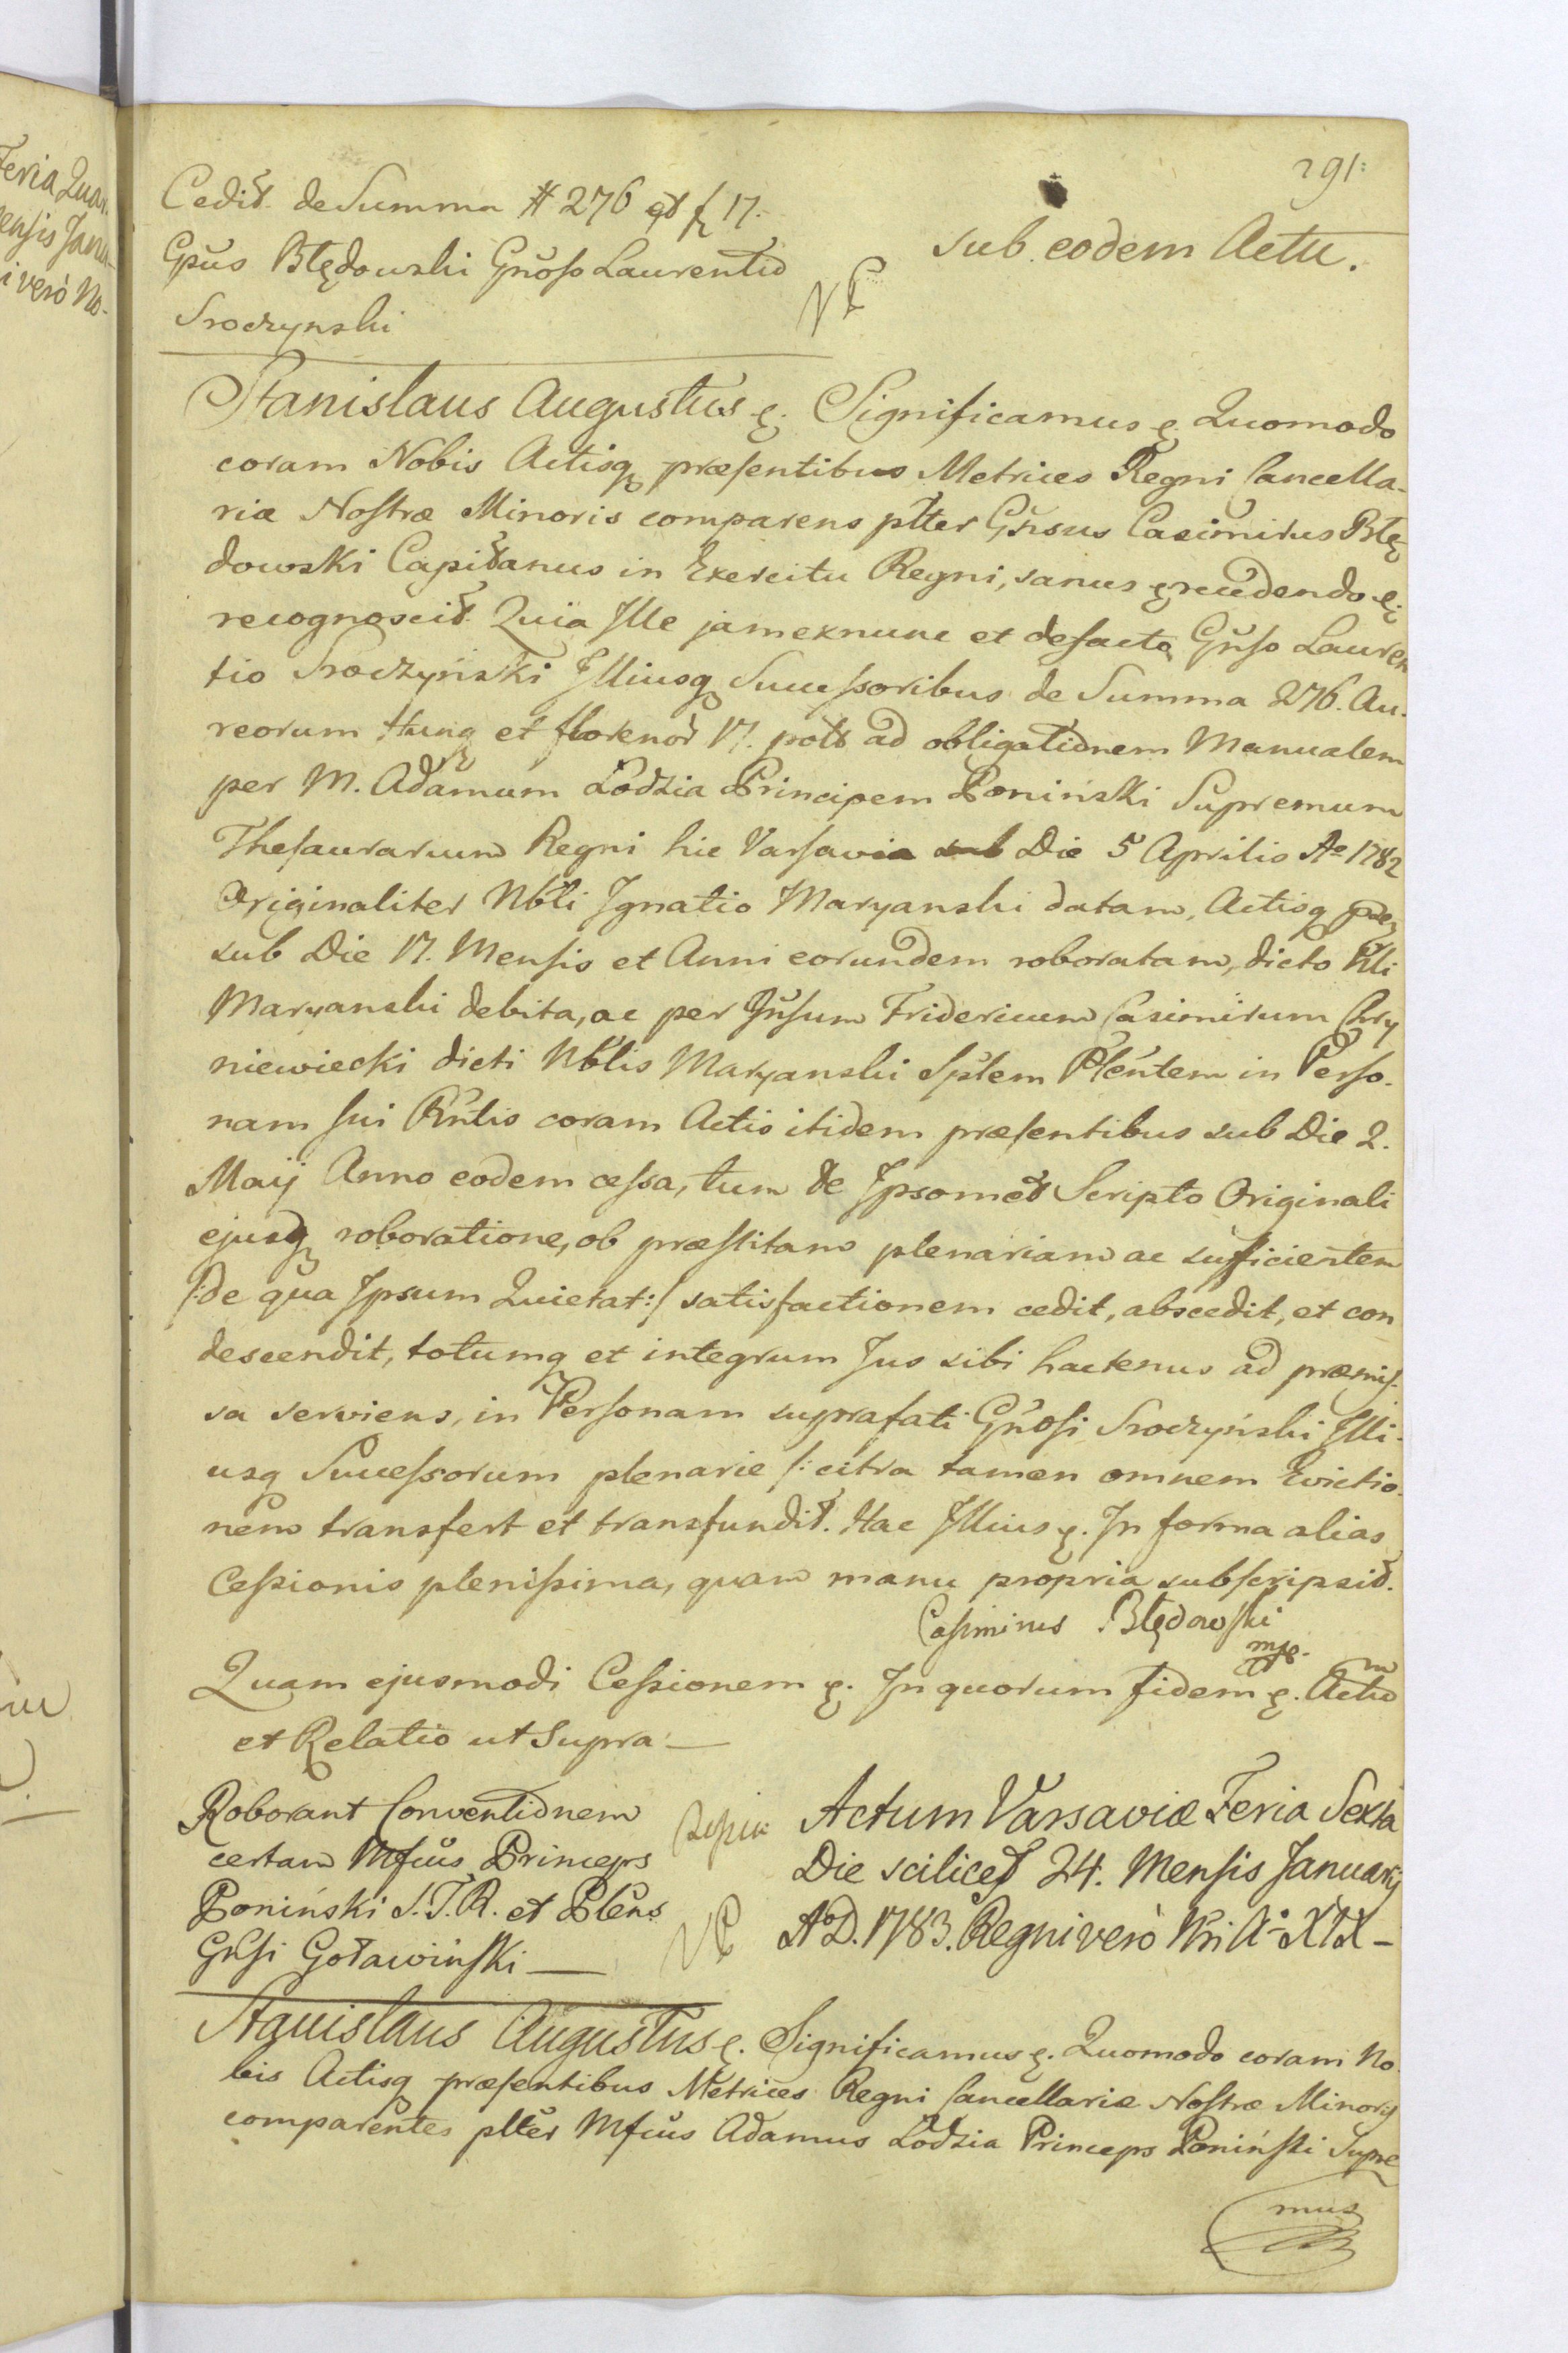 291.
Cedit de Summa # 276 et f 17.
Gnus Błędowski Gnoso Laurentio
Sroczynski
sub eodem Actu.
Stanislaus Augustus &. Significamus &. Quomodo
coram Nobis Actisq præsentibus Metrices Regni Cancella-
riæ Nostræ Minoris comparens pltter Gnsus Casimirus Błę
dowski Capitanus in Exercitu Regni, sanus & recedendo &.
recognoscit. Quia Ille jam exnunc et defacto Gnso Lauren
tio Sroczyński Illiusq Successoribus de Summa 276. Au-
reorum Hung et florenor 17. polt ad obligationem Manualem
per M. Adamum Łodzia Principem Poniński Supremum
Thesaurarium Regni hic Varsavia Die 5 Aprilis Ao 1782
Originaliter Nbli Ignatio Maryanski datam, Actisq
sub Die 17. Mensis et Anni eorundem roboratam, dicto Nbli
Maryanski debita, ac per Gnsum Fridericum Casimirum Cry
niewiecki dicti Nblis Maryanski Splem Plentem in Perso-
nam sui Rntis coram Actis itidem præsentibus sub Die 2.
Maij Anno eodem cessa, tum de Ipsomet Scripto Originali
ejusq roboratione, ob præstitam plenariam ac sufficientem
/:de qua Ipsum Quietat:/ satisfactionem cedit, abscedit, et con
descendit, totumq et integrum Jus sibi hactenus ad præmis-
sa serviens, in Personam suprafati Gnosi Sroczyński Illi-
usq Successorum plenarie /: citra tamen omnem Evictio-
nem transfert et transfundit. Hac Illius &. In forma alias
Cessionis plenissima, quam manu propria subscripsit.
Casimirus Błędowski
mp.
Quam ejusmodi Cessionem &. In quorum fidem &. Actum
et Relatio ut Supra —
Roborant Conventionem
certam Mfcus Princeps
Poniński S.T.R. et Plens
Gnsi Goławiński —
Actum Varsaviæ Feria Sexta
Die scilicet 24. Mensis Januarij
AoD. 1783. Regni vero Nri Ao XIX —
Stanislaus Augustus &. Significamus &. Quomodo coram No-
bis Actisq præsentibus Metrices Regni Cancellariæ Nostræ Minoris
comparentes pltter Mfcus Adamus Łodzia Princeps Poniński Supre
mus